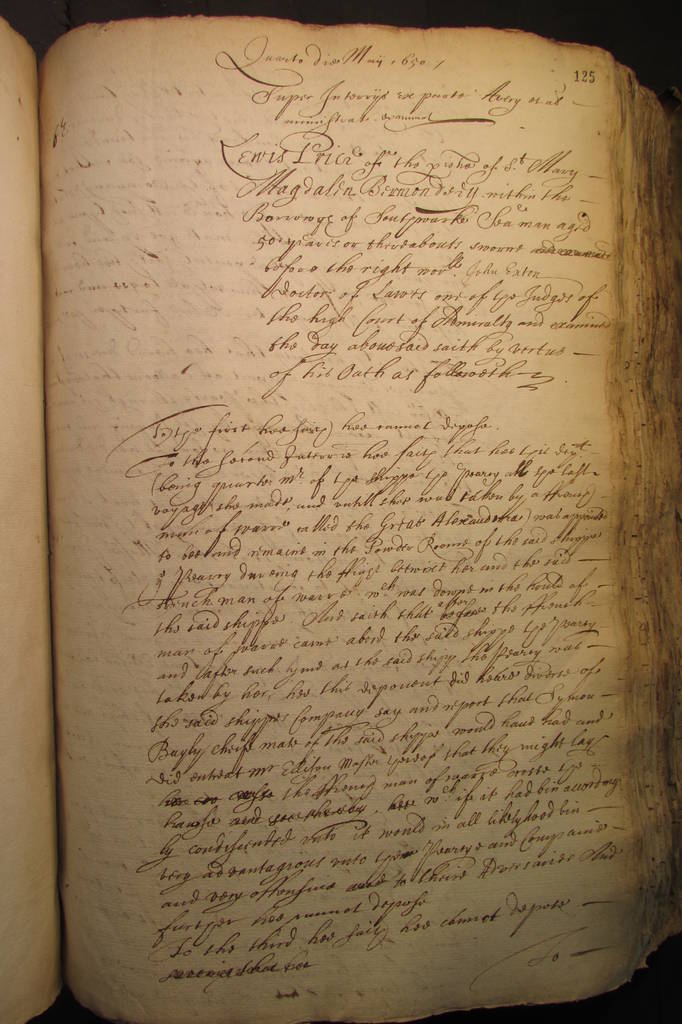 Quarto die May 1650 /
125
Super Interrijs ex parte Avery et al
ministrat
6us
Lewis Price of the pishe of St Mary
Magdalen Bermondsey within the
Borrowge of Southwarke Seaman aged
50 yeares or thereabouts sworne
before the right worll John Exton
Doctor of Lawes one of ye Judges of
the high Court of Admiralty and examined
the day abouesaid saith by vertue
of his Oath as followeth
To ye first hee saye hee cannot depose.
To the second Interrie hee saith that hee this dept
(being quarter mr of ye shippe ye Pearey all ye last
voyage she made, and untill shee was taken by a ffrench
man of warre called the Great Alexander) was appointed
to bee and remaine in the Powder Roome of the said shippe
ye Pearey dureing the ffight betwixt her and the said
ffrench man of warre wch was downe in the hould of
the said shippe And saith that after the ffrench
man of warre came abord the said shippe ye Pearey
and after such tyme as the said shipp the Pearey was
taken by her, hee this deponent did heare diverse of
the said shippes Company say and report that Symon
Bayly cheife mate of the said shippe would haue had and
did entreat mr Ellison Master thereof that they might lay
the ffrench man of warre ye
hause wch if it had bin according
ly condiscended unto it would in all likelyhood bin
very advantagious unto ye Pearye and Companie
and very offensive to theire Adversaries And
further hee cannot depose
To the third hee saith hee cannot depose
To